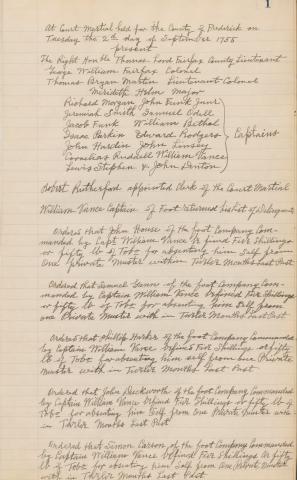 1
At Court Martial held for the County of Frederick on
Tuesday the 2th day of September 1755
present
The Right Honble Thomas Lord Fairfax County Lieutenant
George William Fairfax Colonel
Thomas Bryan Martin Lieutenant Colonel
Meridith Helm Major
Richard Morgan John Funk Junr
Jeremiah Smith Samuel Odell
Jacob Funk William Bethel
Isaac Parkin Edward Rodgers
Captains
John Hardin John Linsey
Cornelius Ruddell William Vance
Lewis Stephen & John Denton
Robert Rutherford appointed Clerk of the Court Martial
William Vance Captain of Foot returned his list of Delinquents
Ordered that John House of the foot Company Com-
manded by Capt William Vance be fined Five Shillings
or fifty lb of Tobo for absenting him Self from
one private Muster within Twelve Months Last Past
Ordered that Samuel of the foot Company Com-
manded by Captain William Vance be fined Five Shillings
or fifty lb of Tobo for absenting him Self from
one Private Muster with in Twelve Months Last Past
Ordered that Phillip of the foot Company Commanded
by Captain William Vance be fined Five Shillings or fifty
lb of Tobo for absenting him self from one Private
Muster with in Twelve Months Last Past
Ordered that John Duckworth of the foot Company Commanded
by Captain William Vance be fined Five Shillings or fifty lb of
Tobo for absenting him Self from one Private Muster with
in Twelve Months Last Past
Ordered that Simon Carson of the foot Company Commanded
by Captain William Vance be fined Five Shillings or fifty
lb of Tobo for absenting him Self from one Private Muster
with in Twelve Months Last Past